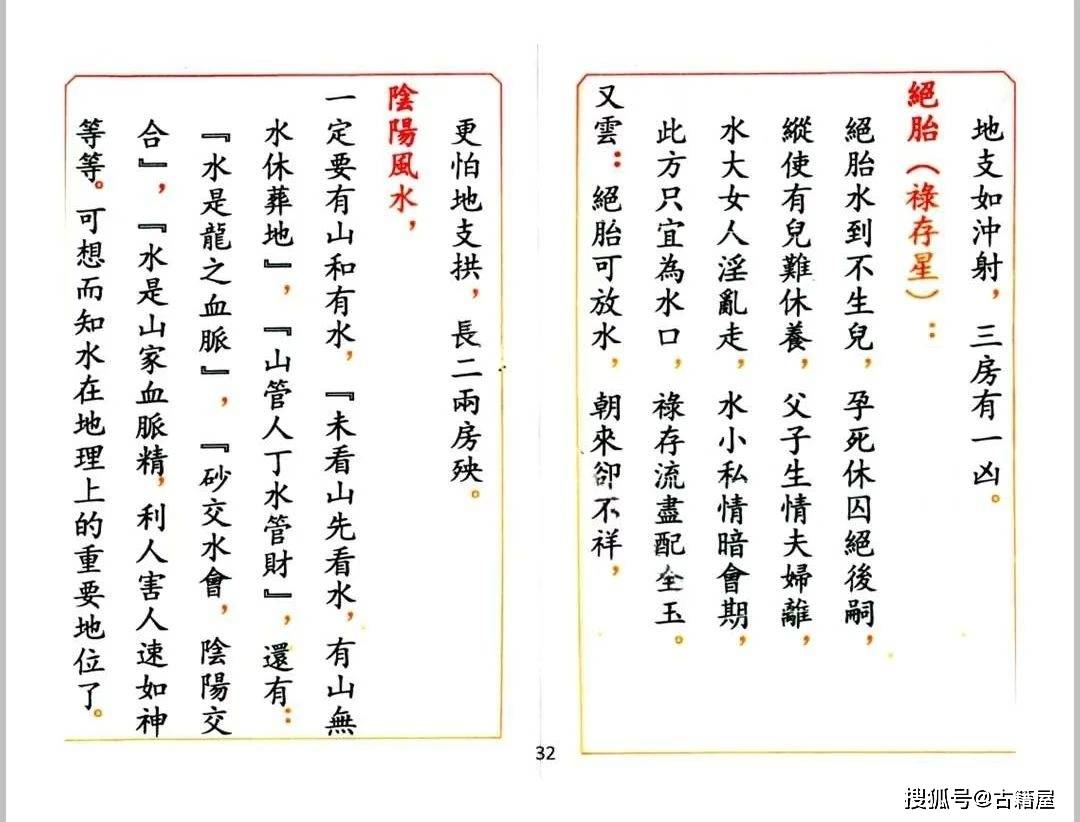 地支如沖射，三房有一凶。
絕胎（祿存星）：
絕胎水到不生兒，孕死休囚絕後嗣，
縱使有兒難休養，父子生情夫婦離，
水大女人淫亂走，水小私情暗會期，
此方只宜為水口，祿存流盡配全玉。
又雲：絕胎可放水，朝來卻不祥，
更怕地支拱，長二兩房殃。
陰陽風水，
一定要有山和有水，『未看山先看水，有山無
水休葬地』，『山管人丁水管財』，還有：
『水是龍之血脈』，『砂交水會，陰陽交
合』，『水是山家血脈精，利人害人速如神
等等。可想而知水在地理上的重要地位了。
32
搜狐号@古籍屋